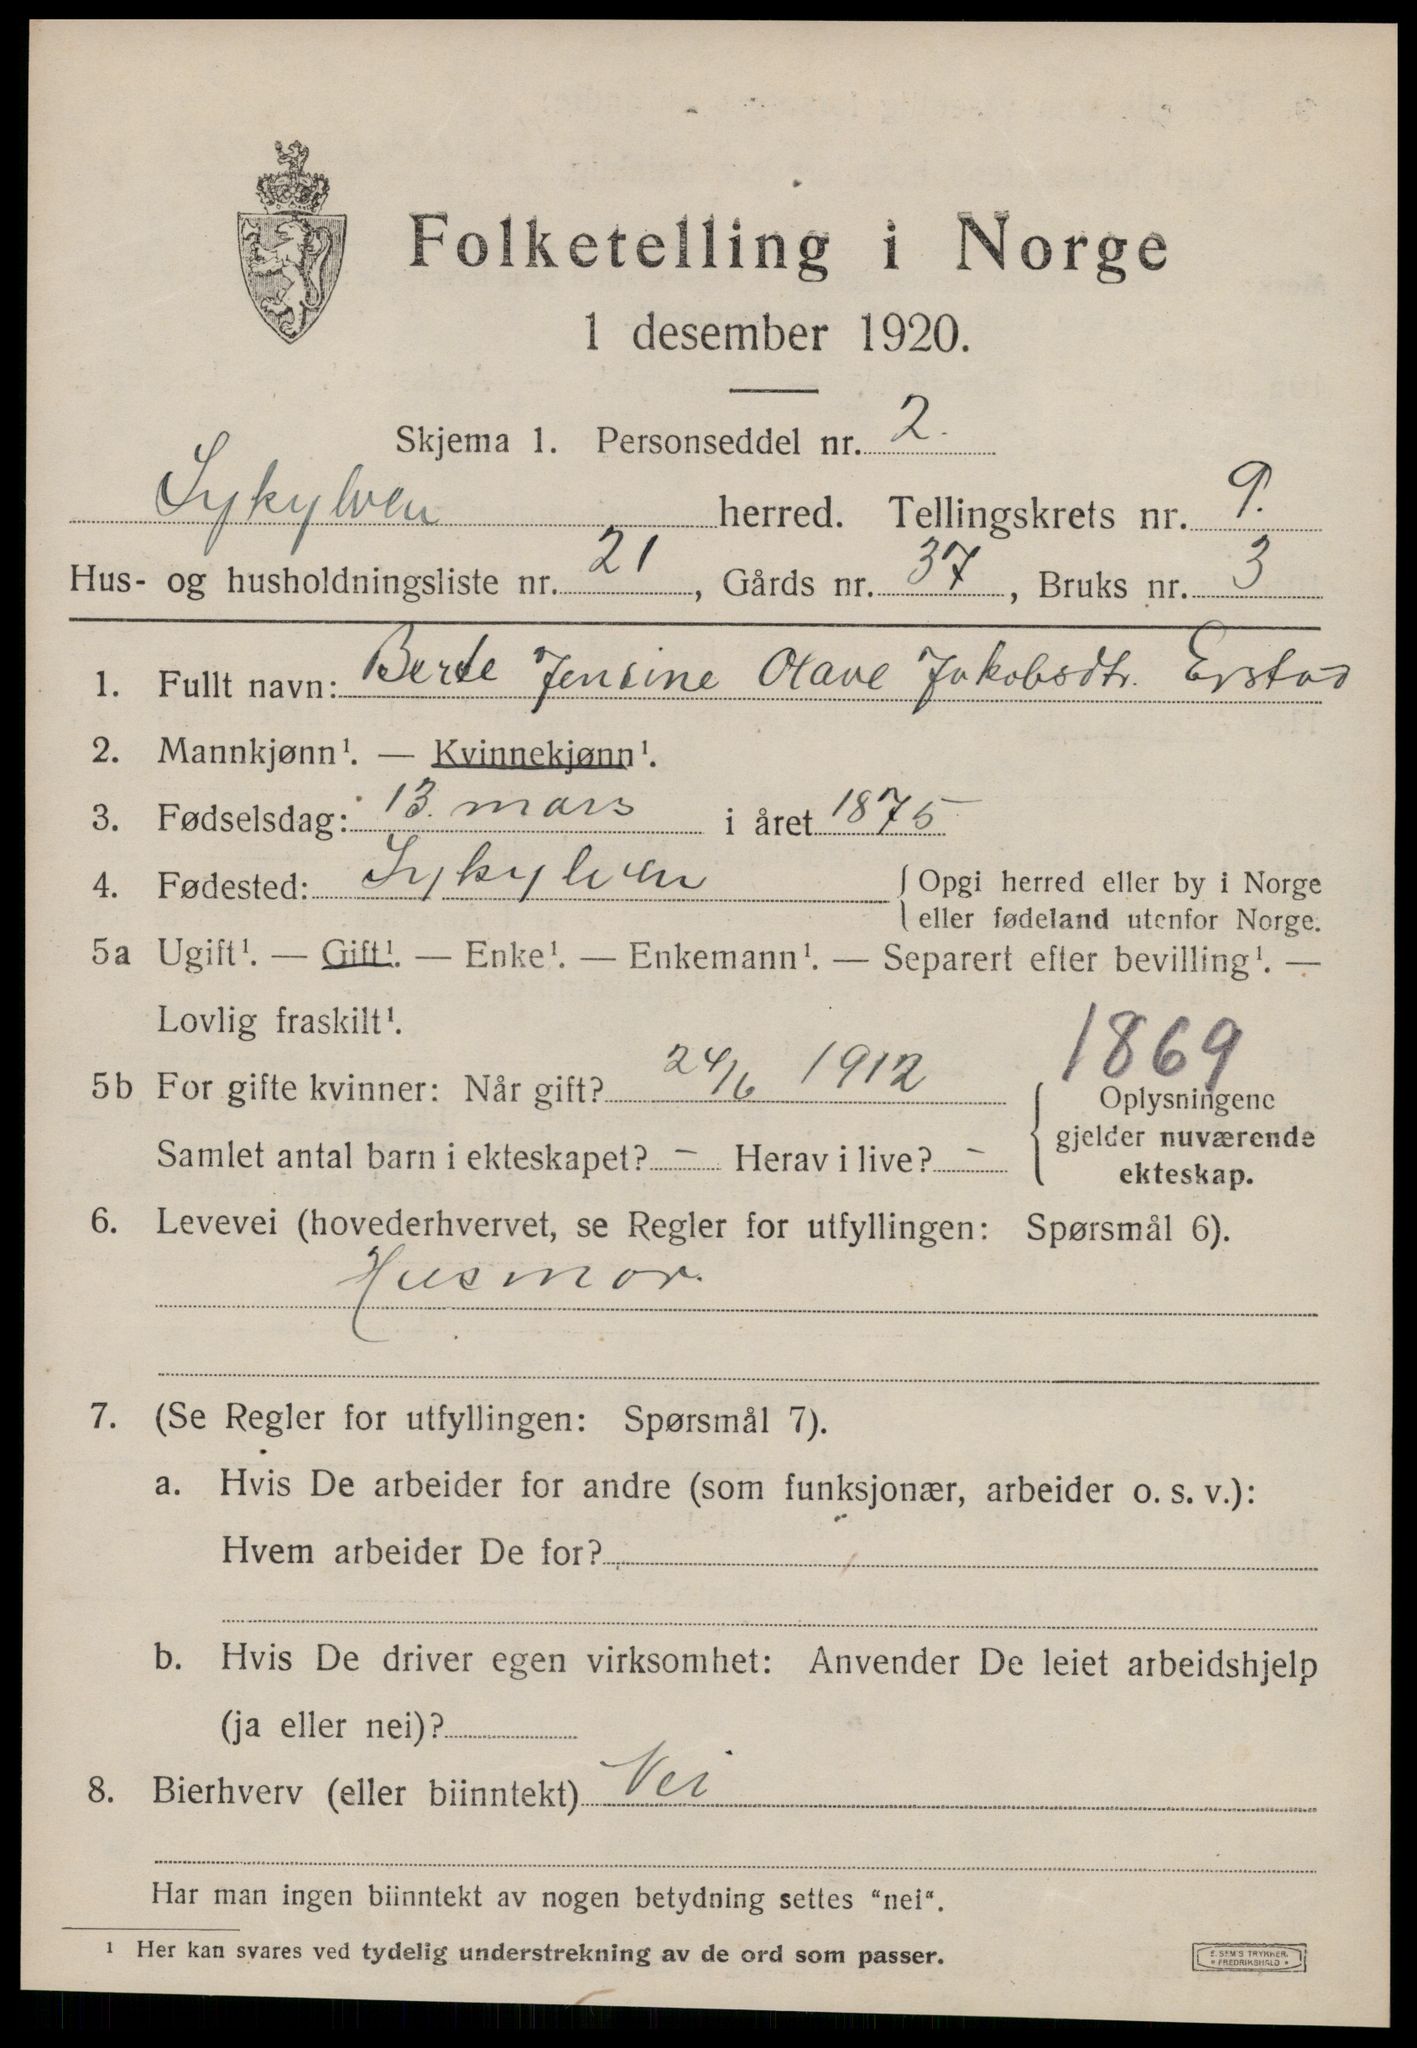 Folketelling i Norge
1 desember 1920.
Skjema 1. Personseddel nr. 2.
Sykylven herred. Tellingskrets nr. 9.
Hus- og husholdningsliste nr. 21, Gårds nr. 37, Bruks nr. 3
1. Fullt navn: Berte Jensine Olave Jakobsdtr. Erstad
2. Mannkjønn¹. — Kvinnekjønn¹.
3. Fødselsdag: 13. mars i året 1875
4. Fødested: Sykylven { Opgi herred eller by i Norge
eller fødeland utenfor Norge.
5a Ugift¹. — Gift¹. — Enke¹. — Enkemann¹. — Separert efter bevilling¹. —
Lovlig fraskilt¹.
1869
5b For gifte kvinner: Når gift? 24/6 1912 { Oplysningene
gjelder nuværende
Samlet antal barn i ekteskapet? – Herav i live? –
ekteskap.
6. Levevei (hovederhvervet, se Regler for utfyllingen: Spørsmål 6).
Husmor.
7. (Se Regler for utfyllingen: Spørsmål 7).
a. Hvis De arbeider for andre (som funksjonær, arbeider o. s. v.):
Hvem arbeider De for?
b. Hvis De driver egen virksomhet: Anvender De leiet arbeidshjelp
(ja eller nei)?
8. Bierhverv (eller biinntekt) Nei
Har man ingen biinntekt av nogen betydning settes "nei".
¹ Her kan svares ved tydelig understrekning av de ord som passer.
E. SEM'S TRYKKERI
* FREDRIKSHALD *